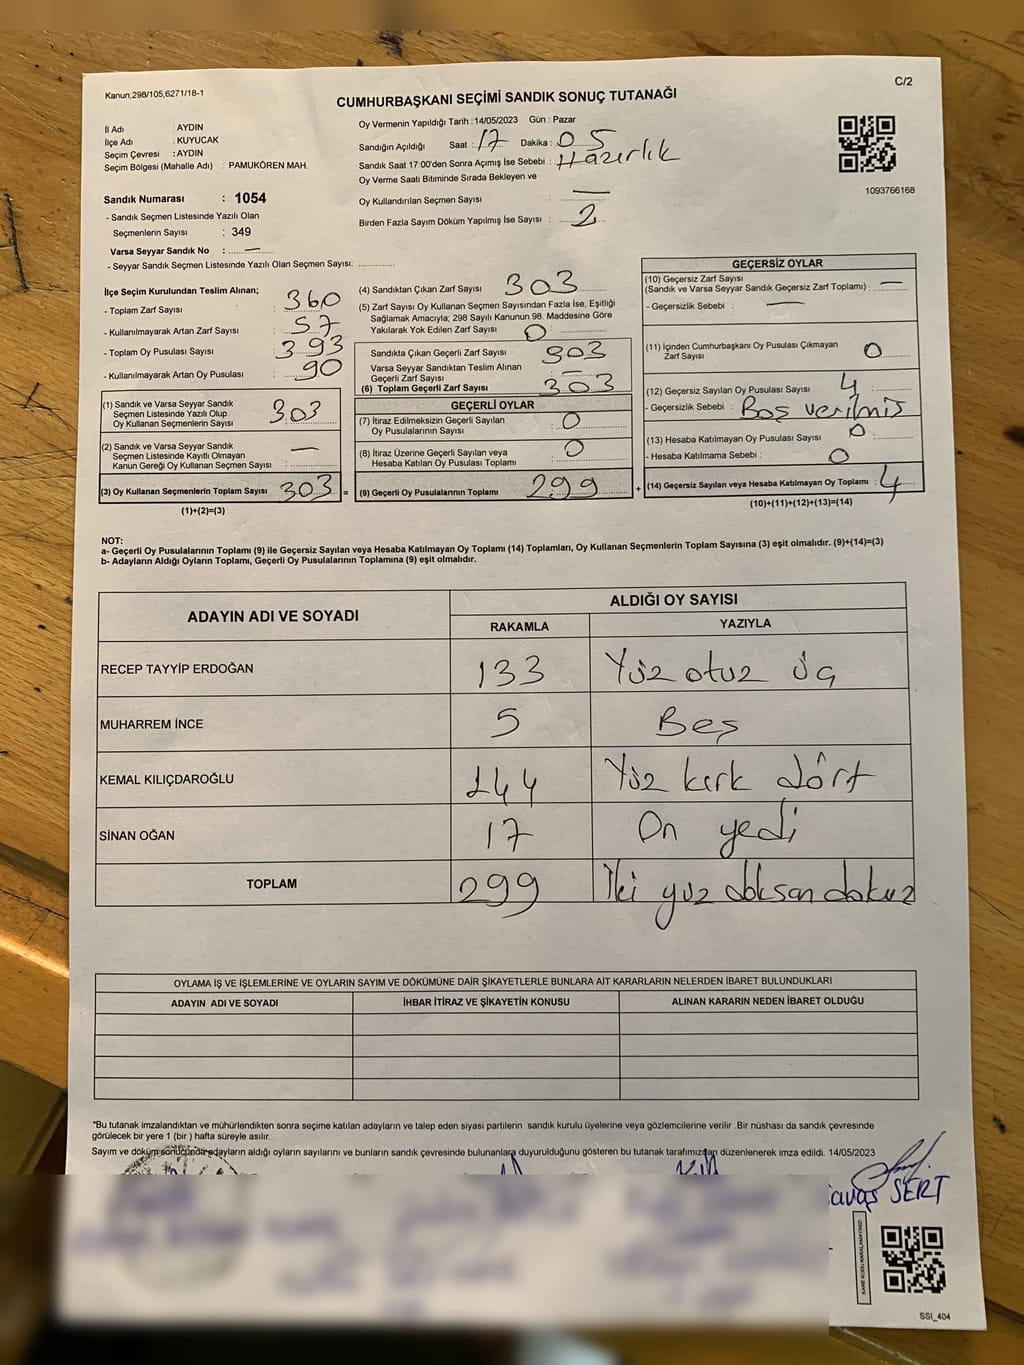 Kanun;298/105,6271/18-1
C/2
CUMHURBAŞKANI SEÇİMİ SANDIK SONUÇ TUTANAĞI
İl Adı : AYDIN
İlçe Adı : KUYUCAK
Seçim Çevresi : AYDIN
Seçim Bölgesi (Mahalle Adı) : PAMUKÖREN MAH.
Sandık Numarası : 1054
- Sandık Seçmen Listesinde Yazılı Olan
Seçmenlerin Sayısı : 349
Varsa Seyyar Sandık No : —
- Seyyar Sandık Seçmen Listesinde Yazılı Olan Seçmen Sayısı:
Oy Vermenin Yapıldığı Tarih :14/05/2023 Gün : Pazar
Sandığın Açıldığı Saat : 17 Dakika : 05
Sandık Saat 17:00'den Sonra Açımış İse Sebebi : Hazırlık
Oy Verme Saati Bitiminde Sırada Bekleyen ve
Oy Kullandırılan Seçmen Sayısı : —
Birden Fazla Sayım Döküm Yapılmış İse Sayısı : 2
1093766168
İlçe Seçim Kurulundan Teslim Alınan;
- Toplam Zarf Sayısı : 360
- Kullanılmayarak Artan Zarf Sayısı : 57
- Toplam Oy Pusulası Sayısı : 393
- Kullanılmayarak Artan Oy Pusulası : 90
(1) Sandık ve Varsa Seyyar Sandık
Seçmen Listesinde Yazılı Olup
Oy Kullanan Seçmenlerin Sayısı : 303
(2) Sandık ve Varsa Seyyar Sandık
Seçmen Listesinde Kayıtlı Olmayan
Kanun Gereği Oy Kullanan Seçmen Sayısı : —
(3) Oy Kullanan Seçmenlerin Toplam Sayısı : 303 =
(1)+(2)=(3)
(4) Sandıktan Çıkan Zarf Sayısı : 303
(5) Zarf Sayısı Oy Kullanan Seçmen Sayısından Fazla İse, Eşitliği
Sağlamak Amacıyla; 298 Sayılı Kanunun 98. Maddesine Göre
Yakılarak Yok Edilen Zarf Sayısı : 0
Sandıkta Çıkan Geçerli Zarf Sayısı : 303
Varsa Seyyar Sandıktan Teslim Alınan
Geçerli Zarf Sayısı : —
(6) Toplam Geçerli Zarf Sayısı : 303
GEÇERLİ OYLAR
(7) İtiraz Edilmeksizin Geçerli Sayılan
Oy Pusulalarının Sayısı : 0
(8) İtiraz Üzerine Geçerli Sayılan veya
Hesaba Katılan Oy Pusulası Toplamı : 0
(9) Geçerli Oy Pusulalarının Toplamı : 299 +
GEÇERSİZ OYLAR
(10) Geçersiz Zarf Sayısı
(Sandık ve Varsa Seyyar Sandık Geçersiz Zarf Toplamı) : —
- Geçersizlik Sebebi : —
(11) İçinden Cumhurbaşkanı Oy Pusulası Çıkmayan
Zarf Sayısı : 0
(12) Geçersiz Sayılan Oy Pusulası Sayısı : 4
- Geçersizlik Sebebi : Boş verilmiş
(13) Hesaba Katılmayan Oy Pusulası Sayısı : 0
- Hesaba Katılmama Sebebi : 0
(14) Geçersiz Sayılan veya Hesaba Katılmayan Oy Toplamı : 4
(10)+(11)+(12)+(13)=(14)
NOT:
a- Geçerli Oy Pusulalarının Toplamı (9) ile Geçersiz Sayılan veya Hesaba Katılmayan Oy Toplamı (14) Toplamları, Oy Kullanan Seçmenlerin Toplam Sayısına (3) eşit olmalıdır. (9)+(14)=(3)
b- Adayların Aldığı Oyların Toplamı, Geçerli Oy Pusulalarının Toplamına (9) eşit olmalıdır.
ADAYIN ADI VE SOYADI
ALDIĞI OY SAYISI
RAKAMLA YAZIYLA
RECEP TAYYİP ERDOĞAN 133 Yüz otuz üç
MUHARREM İNCE 5 Beş
KEMAL KILIÇDAROĞLU 144 Yüz kırk dört
SİNAN OĞAN 17 On yedi
TOPLAM 299 İki yüz doksan dokuz
OYLAMA İŞ VE İŞLEMLERİNE VE OYLARIN SAYIM VE DÖKÜMÜNE DAİR ŞİKAYETLERLE BUNLARA AİT KARARLARIN NELERDEN İBARET BULUNDUKLARI
ADAYIN ADI VE SOYADI İHBAR İTİRAZ VE ŞİKAYETİN KONUSU ALINAN KARARIN NEDEN İBARET OLDUĞU
*Bu tutanak imzalandıktan ve mühürlendikten sonra seçime katılan adayların ve talep eden siyasi partilerin sandık kurulu üyelerine veya gözlemcilerine verilir .Bir nüshası da sandık çevresinde
görülecek bir yere 1 (bir ) hafta süreyle asılır.
Sayım ve döküm sonucunda adayların aldığı oyların sayılarını ve bunların sandık çevresinde bulunanlara duyurulduğunu gösteren bu tutanak tarafımızdan düzenlenerek imza edildi. 14/05/2023
SERT
KARE KODU KARALAMAYINIZ!
SSİ_404